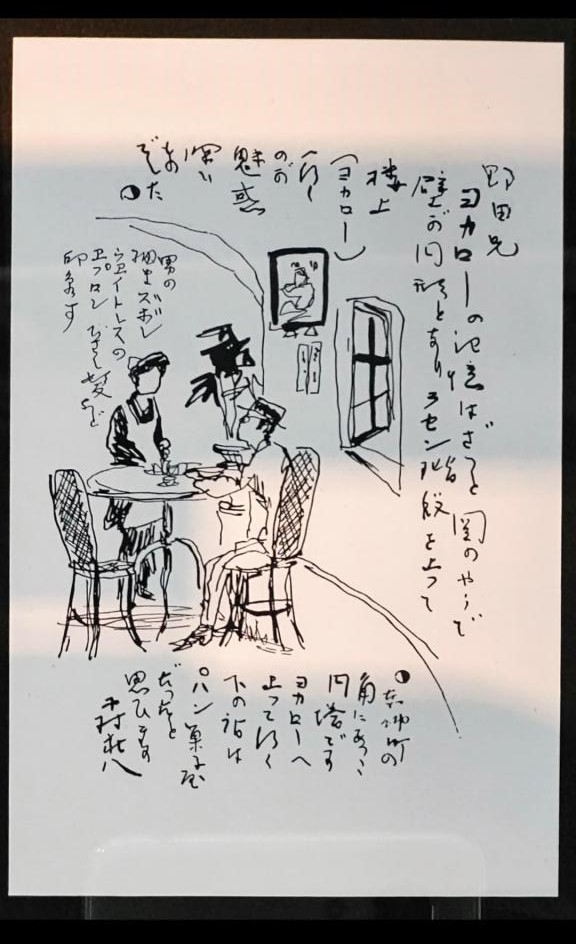 野田兄
ヨカローの記憶はざっと図のやうで
壁が円形となりラセン階段を上って
楼上
(ヨカロー)
へ行く
のが
魅惑
深い
もの
でした
男の
細オズボン
ウエイトレスの
エプロン ひさし髪など
印象す
角にあった
円塔です
ヨカローへ
上って行く
下の站は
パン菓子屋
だったと
思ひます
木村荘八